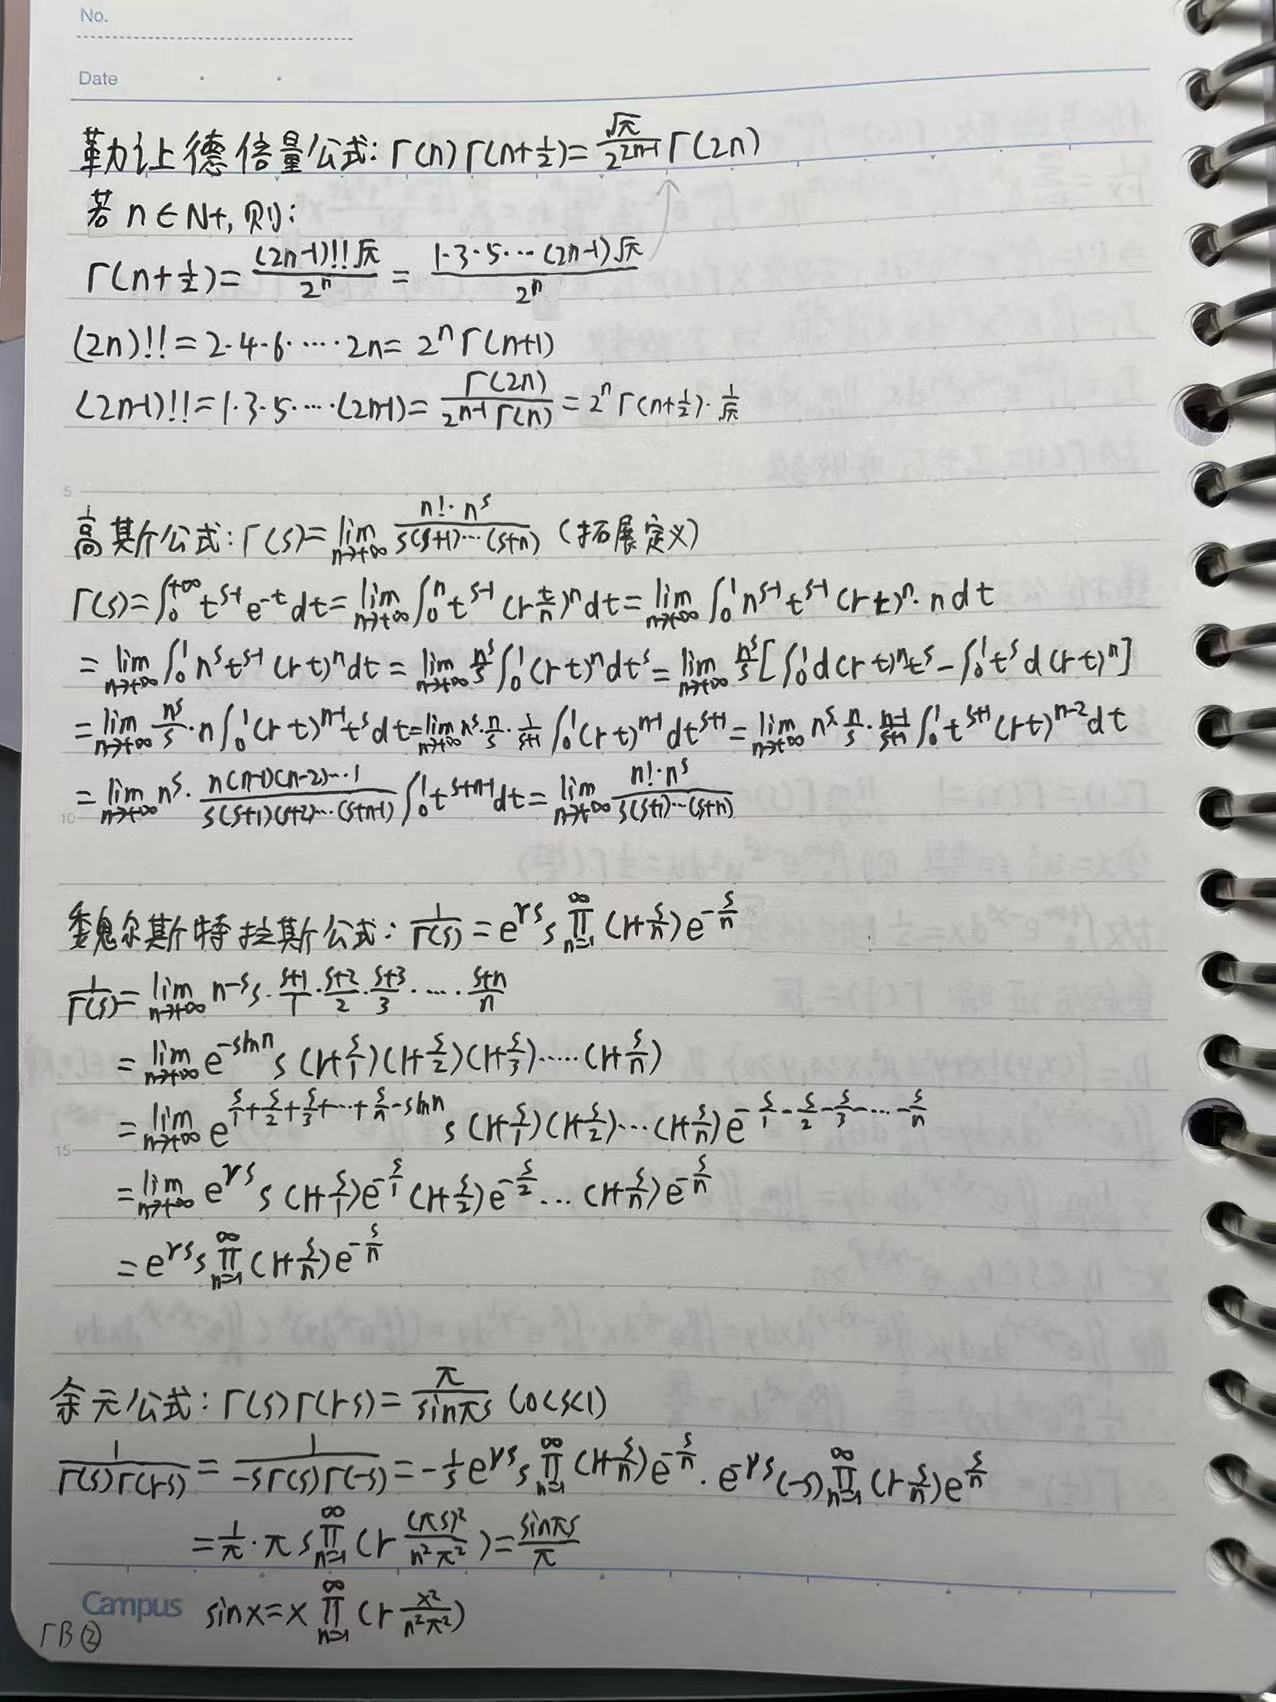 No.
Date
勒让德倍量公式: Γ(n)Γ(n+1/2)=√π/2^(2n-1) Γ(2n)
若 n∈N+, 则:
Γ(n+1/2)=(2n-1)!!√π/2^n = 1·3·5···(2n-1)√π/2^n
(2n)!!=2·4·6·····2n=2^n Γ(n+1)
(2n-1)!!=1·3·5·····(2n-1)=Γ(2n)/(2^(n-1)Γ(n))=2^n Γ(n+1/2)·1/√π
5
高斯公式: Γ(s)=lim n→+∞ n!·n^s/(s(s+1)···(s+n)) (拓展定义)
Γ(s)=∫₀^(+∞) t^(s-1) e^(-t) dt=lim n→+∞ ∫₀^n t^(s-1) (1-t/n)^n dt=lim n→+∞ ∫₀^1 n^(s-1) t^(s-1) (1-t)^n·n dt
=lim n→+∞ ∫₀^1 n^s t^(s-1) (1-t)^n dt=lim n→+∞ n^s/s ∫₀^1 (1-t)^n dt^s=lim n→+∞ n^s/s [∫₀^1 d(1-t)^n t^s-∫₀^1 t^s d(1-t)^n]
=lim n→+∞ n^s/s·n∫₀^1 (1-t)^(n-1) t^s dt=lim n→+∞ n^s·n/s·1/(s+1) ∫₀^1 (1-t)^(n-1) dt^(s+1)=lim n→+∞ n^s·n/s·(n-1)/(s+1) ∫₀^1 t^(s+1) (1-t)^(n-2) dt
10
=lim n→+∞ n^s·n(n-1)(n-2)···1/(s(s+1)(s+2)···(s+n-1)) ∫₀^1 t^(s+n-1) dt=lim n→+∞ n!·n^s/(s(s+1)···(s+n))
魏尔斯特拉斯公式: 1/Γ(s)=e^(γs) s ∏ n=1 ∞ (1+s/n)e^(-s/n)
1/Γ(s)=lim n→+∞ n^(-s) s·(s+1)/1·(s+2)/2·(s+3)/3·····(s+n)/n
=lim n→+∞ e^(-slnn) s(1+s/1)(1+s/2)(1+s/3)·····(1+s/n)
=lim n→+∞ e^(s/1+s/2+s/3+···+s/n-slnn) s(1+s/1)(1+s/2)···(1+s/n)e^(-s/1-s/2-s/3-···-s/n)
15
=lim n→+∞ e^(γs) s(1+s/1)e^(-s/1)(1+s/2)e^(-s/2)···(1+s/n)e^(-s/n)
=e^(γs) s ∏ n=1 ∞ (1+s/n)e^(-s/n)
余元公式: Γ(s)Γ(1-s)=π/sinπs (0<s<1)
1/(Γ(s)Γ(1-s))=1/(-sΓ(s)Γ(-s))=-1/s e^(γs) s ∏ n=1 ∞ (1+s/n)e^(-s/n)·e^(-γs)(-s) ∏ n=1 ∞ (1-s/n)e^(s/n)
=1/π·πs ∏ n=1 ∞ (1-(πs)²/(n²π²))=sinπs/π
Campus sinx=x ∏ n=1 ∞ (1-x²/(n²π²))
ΓB②